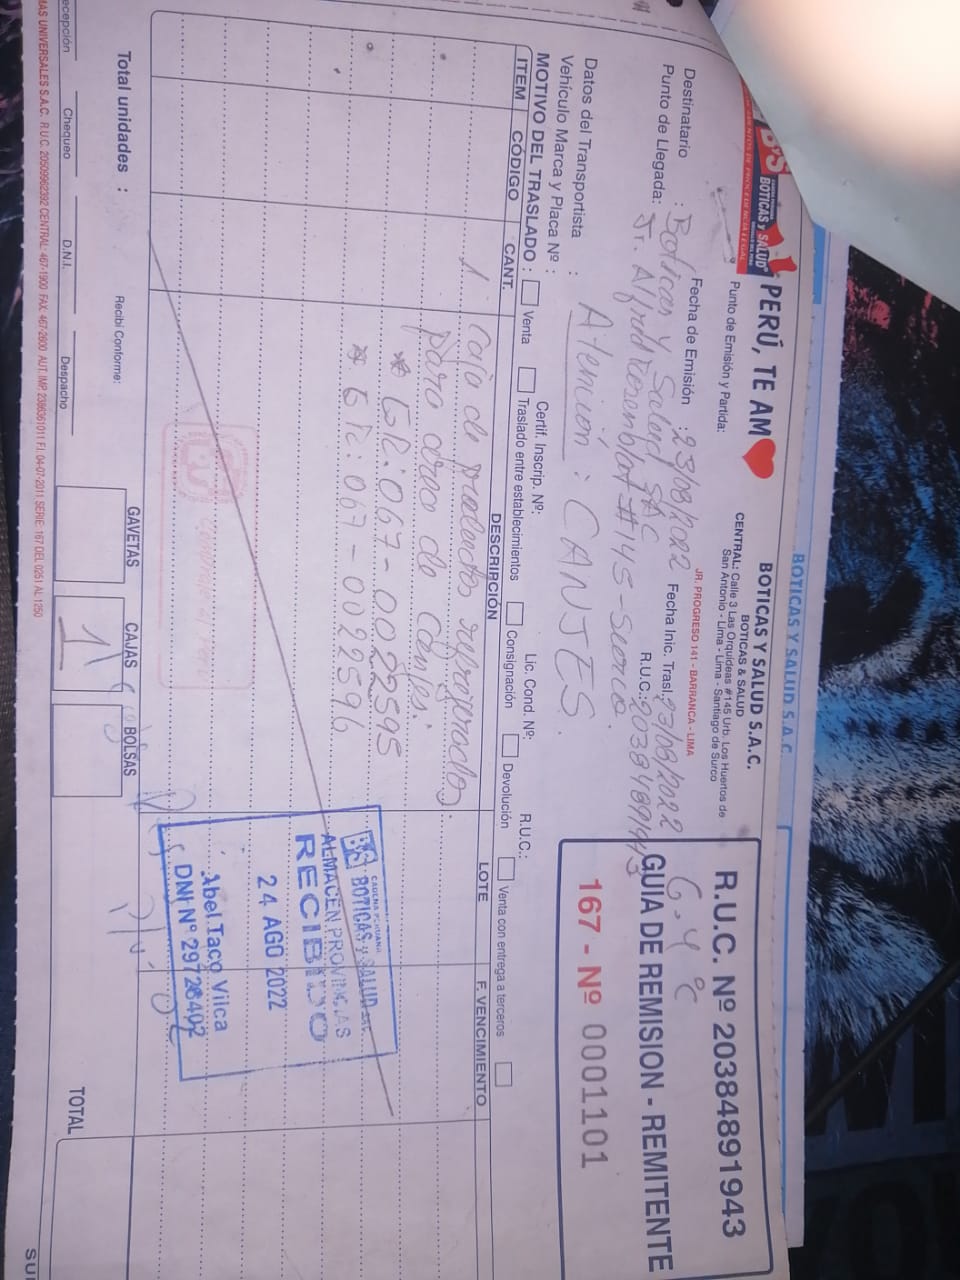 BOTICAS Y SALUD S.A.C.
B'S
BOTICAS y SALUD
PERÚ, TE AM
Punto de Emisión y Partida:
BOTICAS Y SALUD S.A.C.
BOTICAS & SALUD
CENTRAL: Calle 3 Las Orquídeas #145 Urb. Los Huertos de
San Antonio - Lima - Lima - Santiago de Surco
JR. PROGRESO 141 - BARRANCA - LIMA
R.U.C. Nº 20384891943
GUIA DE REMISION - REMITENTE
167 - Nº 0001101
6.4 °C
Fecha de Emisión : 23/08/2022 Fecha Inic. Trasl. 23/08/2022
Destinatario : Boticas y Salud SAC R.U.C.: 20384891943
Punto de Llegada: Jr. Alfred Rosemblat # 145 - Surco.
Atención : CANJES.
Datos del Transportista :
Vehículo Marca y Placa Nº : Certif. Inscrip. Nº: Lic. Cond. Nº: R.U.C.:
MOTIVO DEL TRASLADO : Venta Traslado entre establecimientos Consignación Devolución Venta con entrega a terceros
ITEM CÓDIGO CANT. DESCRIPCIÓN LOTE F. VENCIMIENTO
1 Caja de producto refrigerados.
para cargo de canje:
* GR: 067 - 0022595
* GR: 067 - 0022596
CADENA PERUANA
BS BOTICAS y SALUD
ALMACEN PROVINCIAS
RECIBIDO
24 AGO 2022
Abel Taco Vilca
DNI Nº 29728402
Total unidades :
Recibí Conforme:
GAVETAS CAJAS BOLSAS
1
TOTAL
Chequeo D.N.I. Despacho
UNIVERSALES S.A.C. R.U.C. 20509962392 CENTRAL: 467-1900 FAX: 467-2600 AUT. IMP. 2386361011 F.I. 04-07-2011 SERIE: 167 DEL 0251 AL 1250